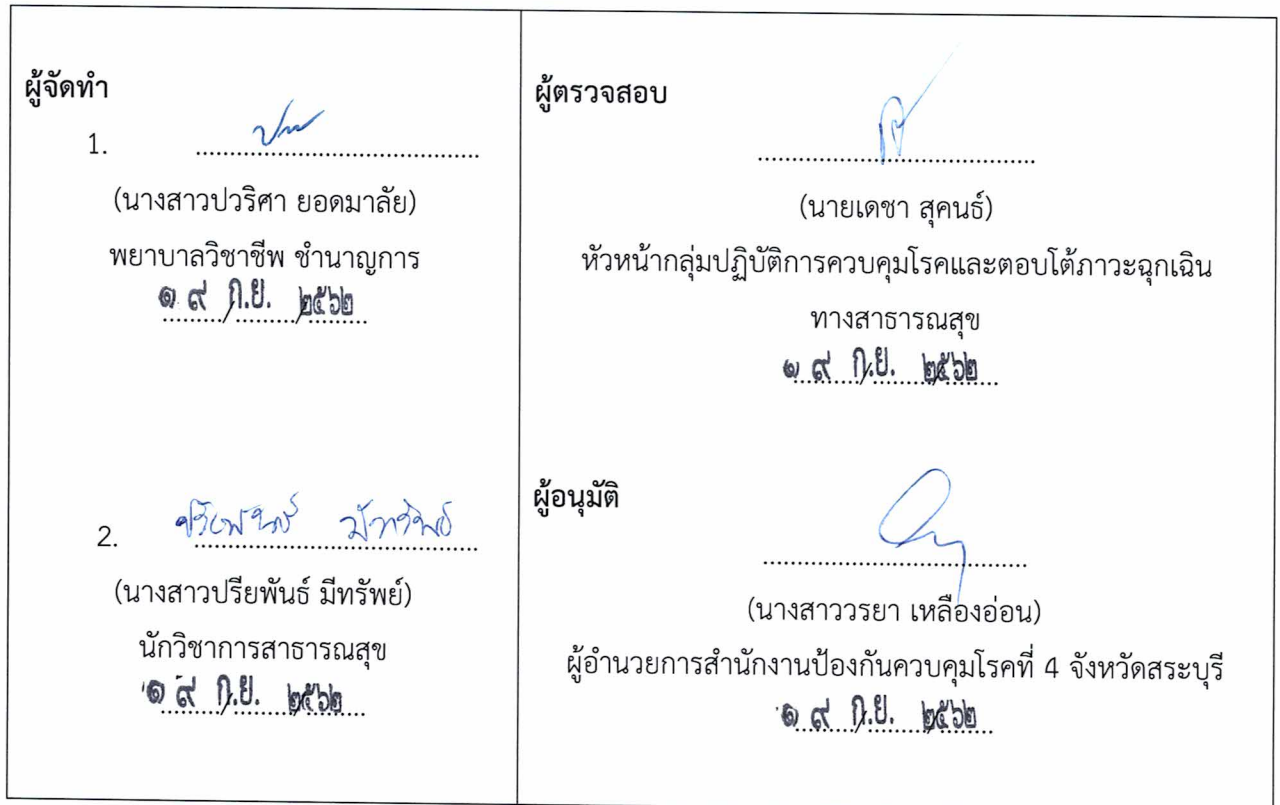 ผู้จัดทำ
1. ........................................
(นางสาวปวริศา ยอดมาลัย)
พยาบาลวิชาชีพ ชำนาญการ
๑ ๙ ก.ย. ๒๕๖๒
2. ปรียพันธ์ มีทรัพย์
(นางสาวปรียพันธ์ มีทรัพย์)
นักวิชาการสาธารณสุข
๑ ๙ ก.ย. ๒๕๖๒
ผู้ตรวจสอบ
........................................
(นายเดชา สุคนธ์)
หัวหน้ากลุ่มปฏิบัติการควบคุมโรคและตอบโต้ภาวะฉุกเฉิน
ทางสาธารณสุข
๑ ๙ ก.ย. ๒๕๖๒
ผู้อนุมัติ
........................................
(นางสาววรยา เหลืองอ่อน)
ผู้อำนวยการสำนักงานป้องกันควบคุมโรคที่ 4 จังหวัดสระบุรี
๑ ๙ ก.ย. ๒๕๖๒